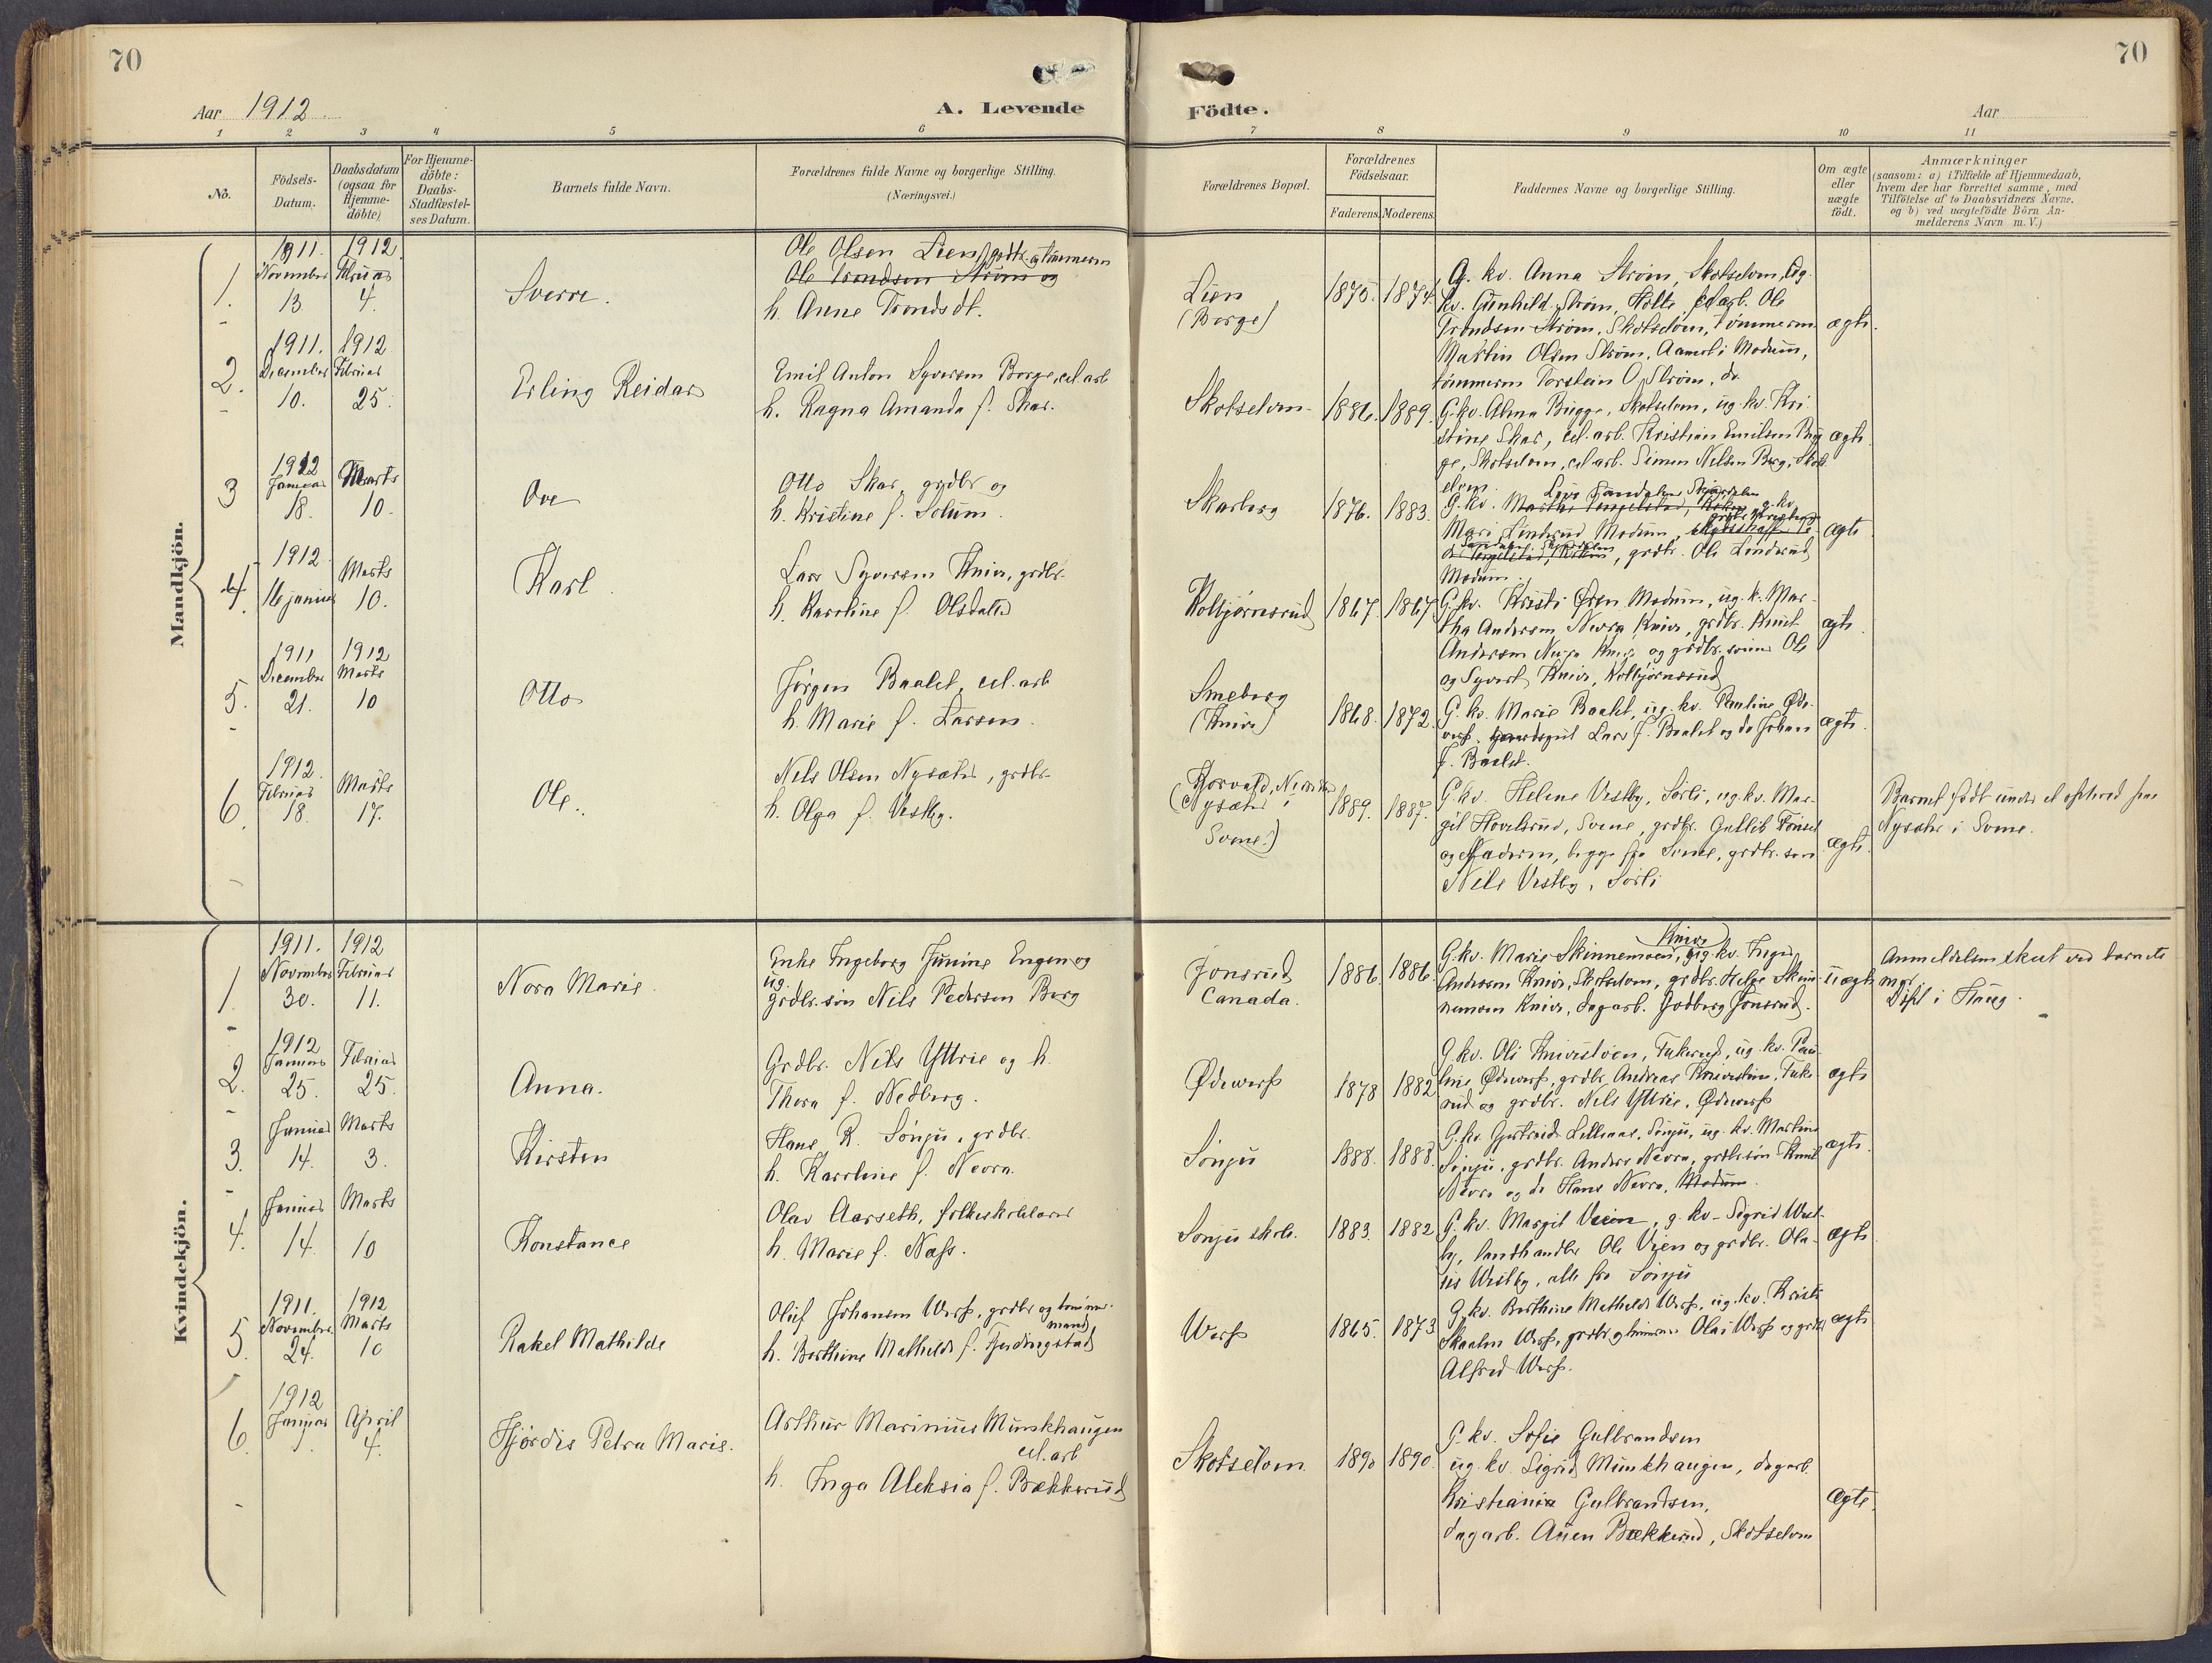 70
70
Aar 1912
A. Levende
Födte.
Aar
1 2 3 4 5 6 7 8 9 10 11
No.
Födsels-Datum.
Daabsdatum (ogsaa for Hjemme-döbte)
For Hjemme-döbte: Daabs-Stadfæstel-ses Datum.
Barnets fulde Navn.
Forældrenes fulde Navne og borgerlige Stilling.
(Næringsvei.)
Forældrenes Bopæl.
Forældrenes Födselsaar.
Faderens. Moderens.
Faddernes Navne og borgerlige Stilling.
Om ægte eller uægte födt.
Anmærkninger
(saasom: a) i Tilfælde af Hjemmedaab,
hvem der har forrettet samme, med
Tilföielse af to Daabsvidners Navne,
og b) ved uægtefödte Börn An-
melderens Navn m. V.)
Mandkjön.
1.
1911. November 13.
1912 Februar 4.
Sverre.
Ole Olsen Lien, grdbr. og tømmerm
Ole Trondsen Strøm og
h. Anne Trondsdt.
Lien
(Borge)
1875. 1874.
G. kv. Anna Strøm, Skotselven, ug.
kv. Gunhild Strøm, Holte, cel.arb. Ole
Trondsen Strøm, Skotselven, tømmerm
Martin Olsen Strøm, Aamot i Modum,
tømmerm Torstein O. Strøm, do.
ægte.
2.
1911. December 10.
1912 Februar 25.
Erling Reidar
Emil Anton Syversen Borge, cel.arb
h. Ragna Amanda f. Skar.
Skotselven
1886. 1889.
G.kv. Alma Brigge, Skotselven, ug. kv. Kri-
stine Skar, cel. arb. Kristian Emilsen Brig
ge, Skotselven, cel.arb. Simen Nilsen Berg, Skots
elven.
ægte
3
1912 Januar 18.
Marts 10.
Ove
Otto Skar, grdbr og
h. Kristine f. Solum.
Skarberg
1876. 1883.
Mari Linderud, Modum,
grdbr. Ole Linderud
Modum.
ægte
4.
1912 16 januar
Marts 10.
Karl
Lars Syversen Knive, grdbr.
h. Karoline f. Olsdatter
Kolbjørnsrud
1867. 1867
G.kv. Kristi Øren Modum, ug. k. Mar-
tha Andersen Nevra Knive, grdbr. Knut
Andersen Nevra Kniv og grdbr.sønne Ole
og Syvert Knive, Kolbjørnsrud
ægte
5.
1911 December 21.
1912 Marts 10
Otto
Jørgen Baalet, cel.arb
h. Marie f. Larsen.
Smeberg
(Knive)
1868. 1872.
G. kv. Marie Baalet, ug. kv. Pauline Øde-
verp. Lars J. Baalet og do Johan
J. Baalet.
ægte.
6.
1912. Februar 18.
Marts 17.
Ole.
Nils Olsen Nysæter, grdbr.
h. Olga f. Vestby.
(Nysæter i
Svene.)
1889. 1887.
G.kv. Helene Vestby, Sørli, ug.kv. Mar-
git Hovelsrud, Svene, grdbr. Gullik
og Faderen, begge fra Svene, grdbr. søn
Nils Vestby, Sørli
ægte.
Barnet født under et ophold fra
Nysæter i Svene.
Kvindekjön.
1.
1911. November 30.
1912 Februar 11.
Nora Marie.
Enke Ingeborg Junine Engen og
ug.
grdbr. søn Nils Pedersen Berg
Jonsrud
Canada.
1886. 1886.
G.kv. Marie Skinnemoen, Knive, ug. kv. Inga
Andersen Knive, Skotselven, grdbr. Helge Skin-
nemoen Knive, dagarb. Fredborg Jonsrud.
uægte
Anmeldelsen skeet ved barnets
mor.
Døpt i Haug.
2.
1912 Januar 25.
Februar 25.
Anna.
Grdbr. Nils Yttrie og h.
Thora f. Nedberg.
Ødeverp
1878 1882
line Ødeverp, grdbr. Andreas
rud og grdbr. Nils Yttrie, Ødeverp
ægte
3.
Januar 14.
Marts 3.
Kirsten
Hans R. Sønju, grdbr.
h. Karoline f. Nevra.
Sønju
1888. 1888.
Sønju, grdbr. Anders Nevra, grdbr.søn Knut
Nevra og do Hans Nevra, Modum.
ægte.
4.
Januar 14.
Marts 10
Konstance
Olav Aarseth, folkeskolelærer
h. Marie f. Næss.
Sønju skole.
1883. 1882
G. kv. Margit Veien, g. kv. Sigrid Vest-
by, landhandler Ole Vien og grdbr. Ola-
us Vestby, alle fra Sønju
ægte
5.
1911. November 24.
1912 Marts 10
Rakel Mathilde
Oluf Johansen Werp, grdbr og tømmer-
mand
h. Berthine Mathilde f. Fjerdingstad
Werp
1865. 1873
G.kv. Berthine Mathilde Werp, ug. kv. Kristi
Skaalen Werp, grdbr og tømmerm Olai Werp og grdbr
Alfred Werp.
ægte
6.
1912 Januar
April 4.
Hjørdis Petra Marie.
Arthur Marinius Munkhaugen
cel.arb
h. Inga Aleksia f. Bækkerud
Skotselven
1890 1890.
G. kv. Sofie Gulbrandsen
ug. kv. Sigrid Munkhaugen, dagarb.
Kristiania Gulbrandsen,
dagarb. Auen Bækkerud, Skotselven
Ægte.